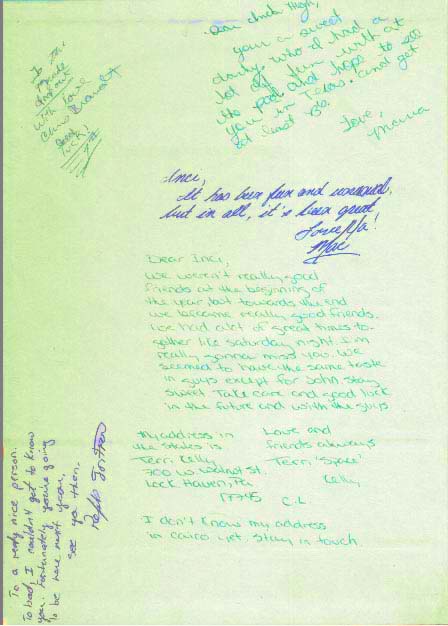 To
Inci
with love
luck,
your a sweet
and hope to see
you in Texas. and get
Love,
Inci,
It has been fun and unusual,
but in all, it's been great
Mac
Dear Inci,
We weren't really good
friends at the beginning of
the year, but towards the end
we became really good friends.
We had alot of great times to-
gether like saturday night. I'm
really gonna miss you. We
seemed to have the same taste
in guys except for John. Stay
sweet. Take care and good luck
in the future and with the guys
My address in
the States is
Terri Kelly
700 W Walnut St.
Lock Haven, Pa
17745
Love and
friends always
Terri "Space"
Kelly
C.L.
I don't know my address
in cairo yet. Stay in touch.
To a really nice person.
To bad, I couldn't get to know
you. Fortunately you're going
to be here next year,
see ya then.